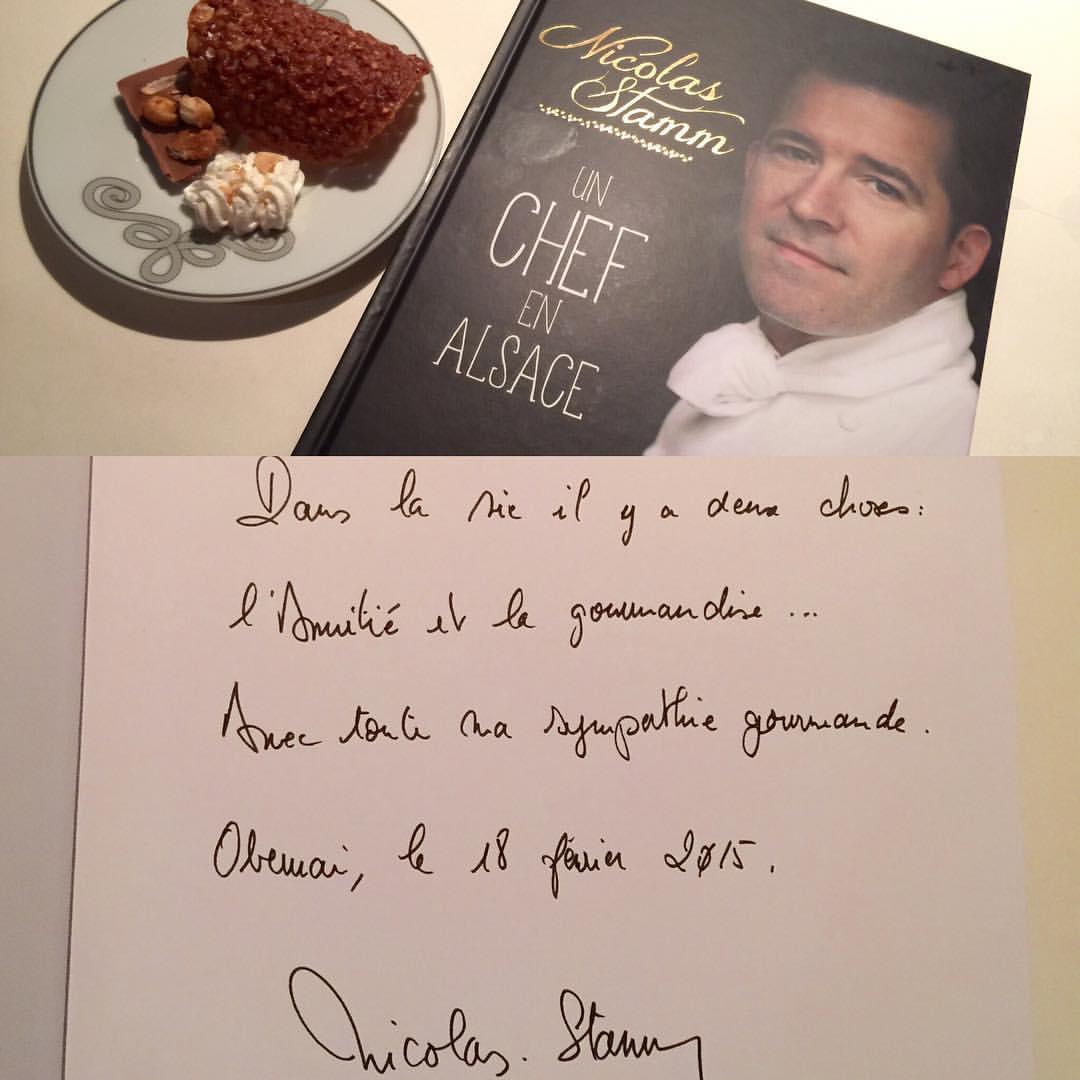 Nicolas
Stamm
UN
CHEF
EN
ALSACE
Dans la vie il y a deux choses:
l'Amitié et la gourmandise...
Avec toute ma sympathie gourmande.
Obernai, le 18 février 2015.
Nicolas. Stamm